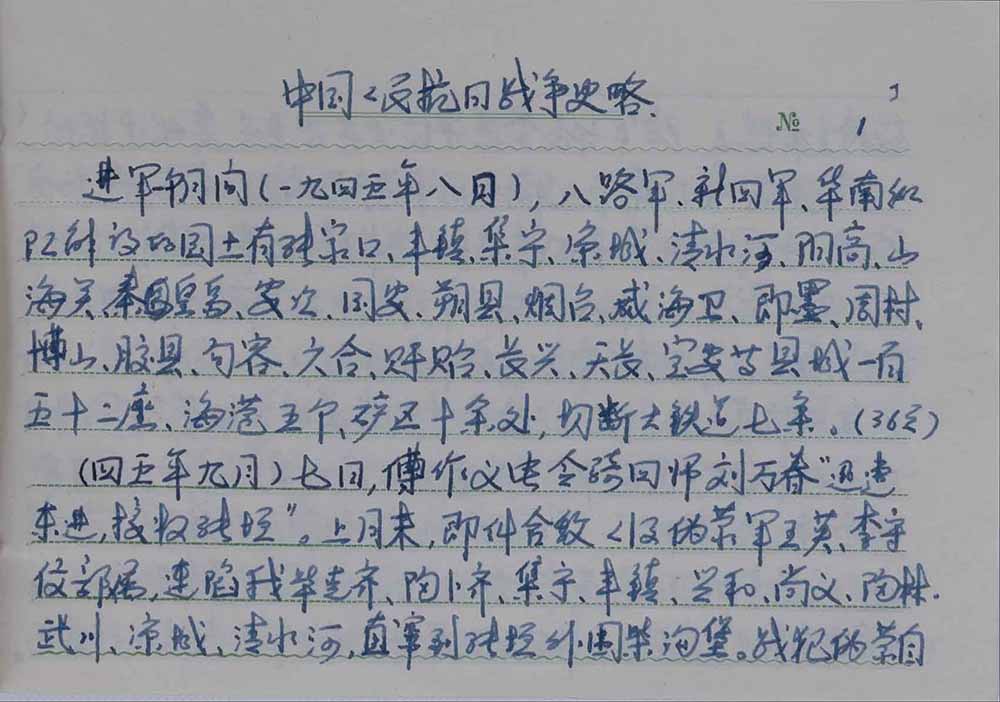 中国人民抗日战争史略.
№ 1
进军期间(一九四五年八月),八路军、新四军、华南纵
队解放的国土有张家口、丰镇、集宁、凉城、清水河、阳高、山
海关、秦皇岛、安次、固安、朔县、烟台、威海卫、即墨、周村、
博山、胶县、句容、六合、盱眙、长兴、天长、宝安等县城一百
五十二座、海港五个、矿区十余处,切断大铁道七条。(36页)
(四五年九月)七日,傅作义电令骑四师刘万春“迅速
东进,接收张垣”。上月末,即伴合敌人及伪蒙军王英、李守
信部属,连陷我毕克齐、陶卜齐、集宁、丰镇、兴和、尚义、陶林.
武川、凉城、清水河,直窜到张垣外围柴沟堡。战犯伪蒙自